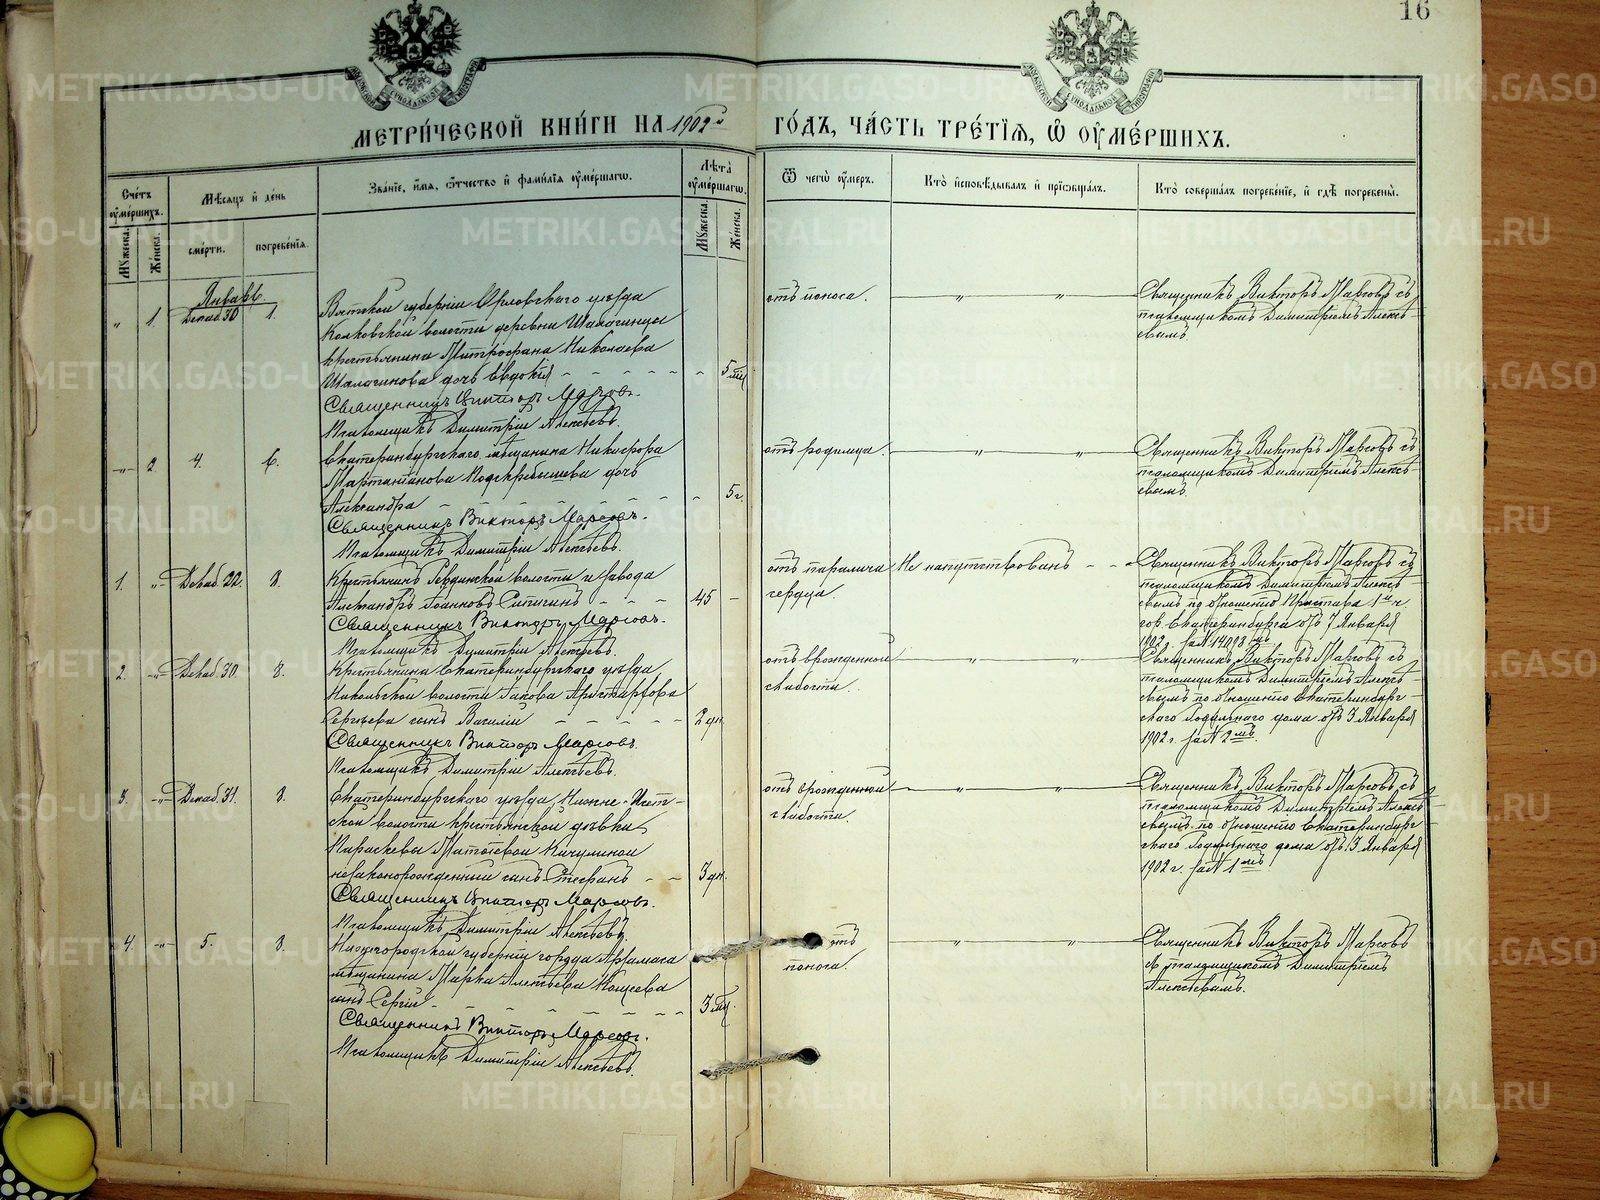 16
МЕТРИ́ЧЕСКОЙ КНИ́ГИ НА 1902й ГО́ДЪ, ЧА́СТЬ ТРЕ́ТІѦ, Ѿ ОУМЕ́РШИХЪ.
Сче́тъ оуме́ршихъ.
Мꙋжеска.
Же́нска.
Мѣ́сѧцъ и҆ де́нь
сме́рти.
погребе́нїѧ.
Зва́нїе, и҆́мѧ, ѻ҆́тчество и҆ фами́лїѧ оуме́ршагѡ.
Лѣта̀ оуме́ршагѡ.
Мꙋжеска.
Же́нска.
Ѿ чегѡ̀ оу́меръ.
Кто̀ и҆сповѣ́дывалъ и҆ прїѡбща́лъ.
Кто̀ соверша́лъ погребе́нїе, и҆ гдѣ̀ погребены̀.
Январь.
" 1. Декаб. 30 1.
Вятской губерніи Орловскаго уѣзда
волости деревни
крестьянина Митрофана Николаева
Шалагинова дочь Евдокія - - - - - - 5 мц
Священникъ Викторъ Марсовъ.
Псаломщикъ Димитрій Алексѣевъ.
отъ поноса. " "
Священникъ Викторъ Марсовъ съ
псаломщикомъ Димитріемъ Алексѣ-
евымъ.
" 2. 4. 6.
Екатеринбургскаго мѣщанина Никифора
Подскребышева дочь
Александра - - - - - - 5 г.
Священникъ Викторъ Марсовъ.
Псаломщикъ Димитрій Алексѣевъ.
отъ родимца. " "
Священникъ Викторъ Марсовъ съ
псаломщикомъ Димитріемъ Алексѣ-
евымъ.
1. " Декаб. 22. 8.
Крестьянинъ волости и завода
Александръ Іоанновъ - - - 45 -
Священникъ Викторъ Марсовъ.
Псаломщикъ Димитрій Алексѣевъ.
отъ паралича
сердца.
Не напутствованъ - -
Священникъ Викторъ Марсовъ съ
псаломщикомъ Димитріемъ Алексѣ-
евымъ по отношенію Пристава 1й ч.
гор. Екатеринбурга отъ 7 Января
1902 г. за №
2. " Декаб. 30. 8.
Крестьянина Екатеринбургскаго уѣзда
Никольской волости Іакова Аристархова
Сергѣева сынъ Василій - - - - - 2 дн.
Священникъ Викторъ Марсовъ.
Псаломщикъ Димитрій Алексѣевъ.
отъ врожденной
слабости. " "
Священникъ Викторъ Марсовъ съ
псаломщикомъ Димитріемъ Алексѣ-
евымъ по отношенію Екатеринбург-
скаго Родильнаго дома отъ 3 Января
1902 г. за № 2мъ.
3. " Декаб. 31. 8.
Екатеринбургскаго уѣзда, Нижне-Исет-
ской волости крестьянской дѣвки
Параскевы
незаконорожденный сынъ Стефанъ - - 3 дн.
Священникъ Викторъ Марсовъ.
Псаломщикъ Димитрій Алексѣевъ.
отъ врожденной
слабости. " "
Священникъ Викторъ Марсовъ съ
псаломщикомъ Димитріемъ Алексѣ-
евымъ по отношенію Екатеринбург-
скаго Родильнаго дома отъ 3 Января
1902 г. за № 1мъ.
4. " 5. 8.
Нижегородской губерніи города Арзамаса
мѣщанина Марка Алексѣева Кощеева
сынъ Сергій - - - - - - 3 мц.
Священникъ Викторъ Марсовъ.
Псаломщикъ Димитрій Алексѣевъ.
отъ
поноса. " "
Священникъ Викторъ Марсовъ
съ псаломщикомъ Димитріемъ
Алексѣевымъ.
METRIKI.GASO-URAL.RU